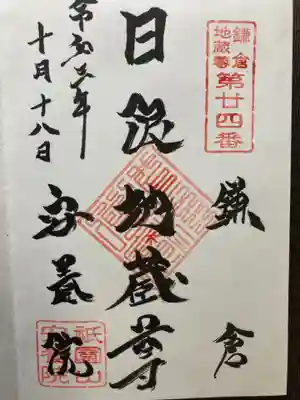 鎌倉
地蔵尊
第廿四番
鎌倉
日限地蔵尊
令和
十月十八日
安養院
祇園山
安養院